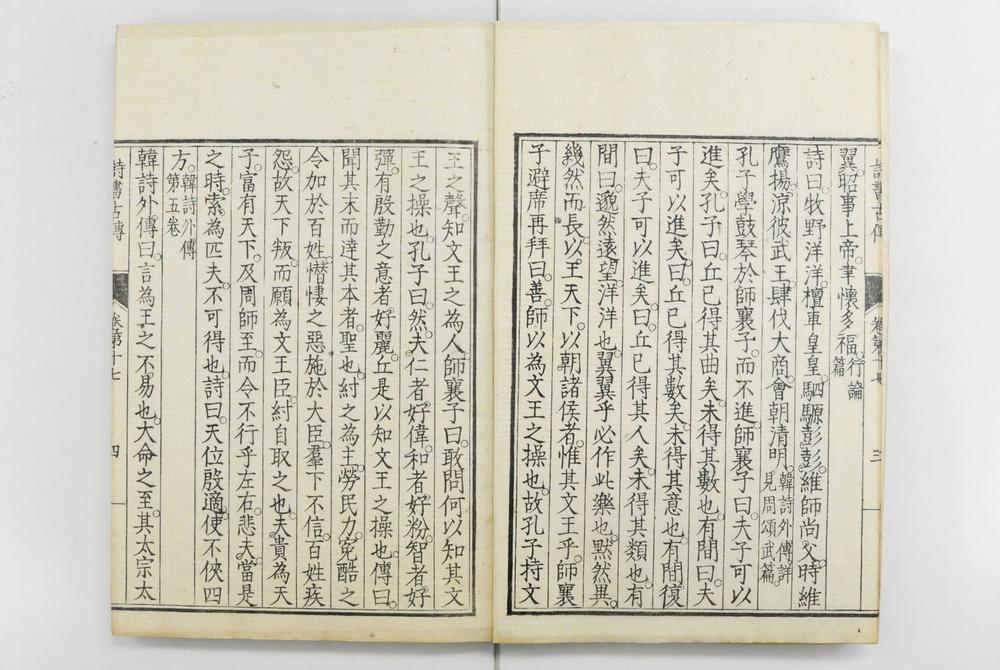 詩書古傳 卷第十七 三
翼昭事上帝。聿懷多福。行論篇
詩曰。牧野洋洋。檀車皇皇。駟騵彭彭。維師尚父。時維
鷹揚。涼彼武王。肆伐大商。會朝清明。韓詩外傳詳見周頌武篇
孔子學鼓琴於師襄子。而不進。師襄子曰。夫子可以
進矣。孔子曰。丘已得其曲矣。未得其數也。有間曰。夫
子可以進矣。曰。丘已得其數矣。未得其意也。有間復
曰。夫子可以進矣。曰。丘已得其人矣。未得其類也。有
間曰。邈然遠望。洋洋也。翼翼乎。必作此樂也。黙然異。
幾然而長。以王天下。以朝諸侯者。惟其文王乎。師襄
子避席再拜曰。善。師以為文王之操也。故孔子持文
王之聲。知文王之為人。師襄子曰。敢問何以知其文
王之操也。孔子曰。然。夫仁者好偉。和者好粉。智者好
彈。有殷勤之意者。好麗。丘是以知文王之操也。傳曰。
聞其末而達其本者。聖也。紂之為主。勞民力。寃酷之
令加於百姓。憯悽之惡施於大臣。羣下不信。百姓疾
怨。故天下叛。而願為文王臣。紂自取之也。夫貴為天
子。富有天下。及周師至。而令不行乎左右。悲夫。當是
之時。索為匹夫。不可得也。詩曰。天位殷適。使不俠四
方。韓詩外傳第五卷
韓詩外傳曰。言為王之不易也。大命之至。其太宗太
詩書古傳 卷第十七 四